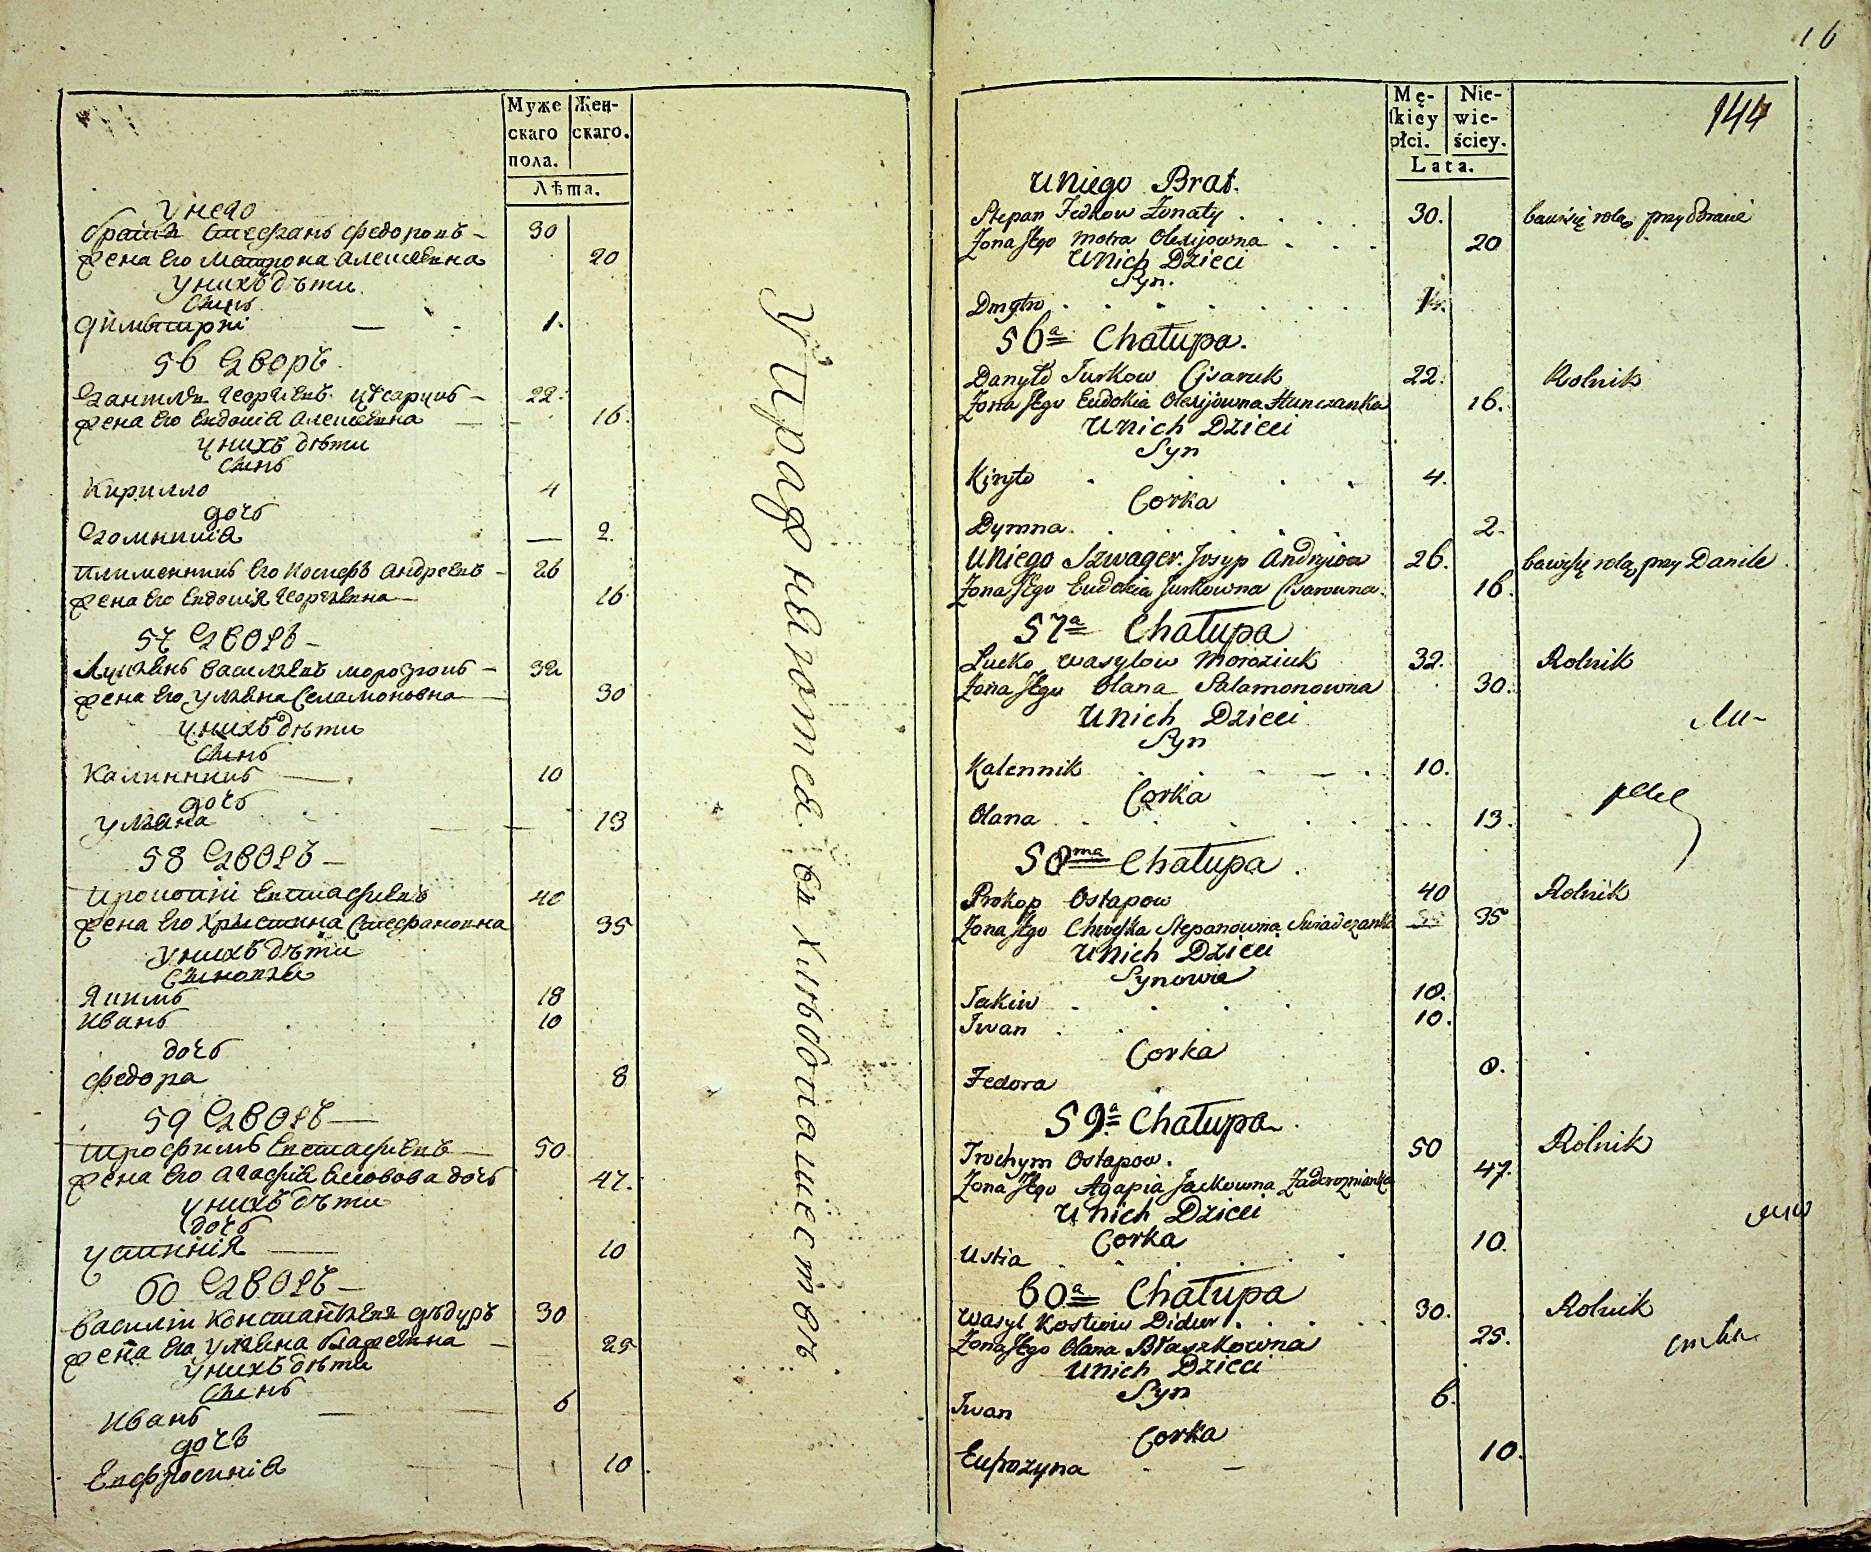 Муже
скаго
пола.
Жен-
скаго.
Лѣта.
У него
братъ Стефанъ Федоровъ 30
жена его Матрона Алешевна 20
у нихъ дѣти
Сынъ
Димытрій 1.
56 Дворъ
Данилъ Георгіевъ Цѣсарукъ 22.
жена его Евдокія Алешевна 16.
у нихъ дѣти
Сынъ
Кирилло 4
дочь
Домникія 2.
племенникъ его Иосифъ Андреевъ 26
жена его Евдокія Георгіевна 16
57 Дворъ
Лукіянъ Василіевъ Морозюкъ 32
жена его Уліяна Саламоновна 30
у нихъ дѣти
Сынъ
Калинникъ 10
дочь
Уліяна 13
58 Дворъ
Прокопій Евстафіевъ 40
жена его Христина Стефановна 35
у нихъ дѣти
Сыновья
Якимъ 18
Иванъ 10
дочь
Федора 8
59 Дворъ
Трофимъ Евстафіевъ 50
жена его Агафія Ековова дочь 47.
у нихъ дѣти
дочь
Устинія 10
60 Дворъ
Василій Константіевъ Дѣдуръ 30
жена его Уліяна Влажевна 25
у нихъ дѣти
Сынъ
Иванъ 6
дочь
Евфросинія 10
Упражняются въ хлѣбопашествѣ
16
144
Mę-
ſkiey
płci.
Nie-
wie-
ściey.
Lata.
U niego Brat.
Stepan Fedkow Żonaty 30. bawi się rolą przy Bracie
Żona Jego Motra Olexijowna 20
U nich Dzieci
Syn.
Dmytro 1.
56a Chałupa.
Danyło Jurkow Cisaruk 22. Rolnik
Żona Jego Eudokia Olexijowna Hunczanka 16.
U nich Dzieci
Syn
Kiryło 4.
Corka
Dymna 2.
U niego Szwager Josyp Andryiow 26. bawi się rolą przy Danile
Żona Jego Eudokia Jurkowna Cisarowna 16.
57a Chałupa
Lucko Wasylow Moroziuk 32. Rolnik
Żona Jego Olana Salamonowna 30.
U nich Dzieci
Syn
Kalennik 10.
Corka
Olana 13.
58ma Chałupa.
Prokop Ostapow 40 Rolnik
Żona Jego Chweſka Stepanowna Swiadczanka 35
U nich Dzieci
Synowie
Jakiw 18.
Iwan 10.
Corka
Fedora 8.
59a Chałupa.
Trochym Ostapow. 50 Rolnik
Żona Jego Agapia Jackowna Zadoroznianka 47.
U nich Dzieci
Corka
Ustia 10.
60a Chałupa
Wasyl Kostiow Didur 30. Rolnik
Żona Jego Olana Błaszkowna 25.
U nich Dzieci
Syn
Iwan 6.
Corka
Eufrozyna 10.